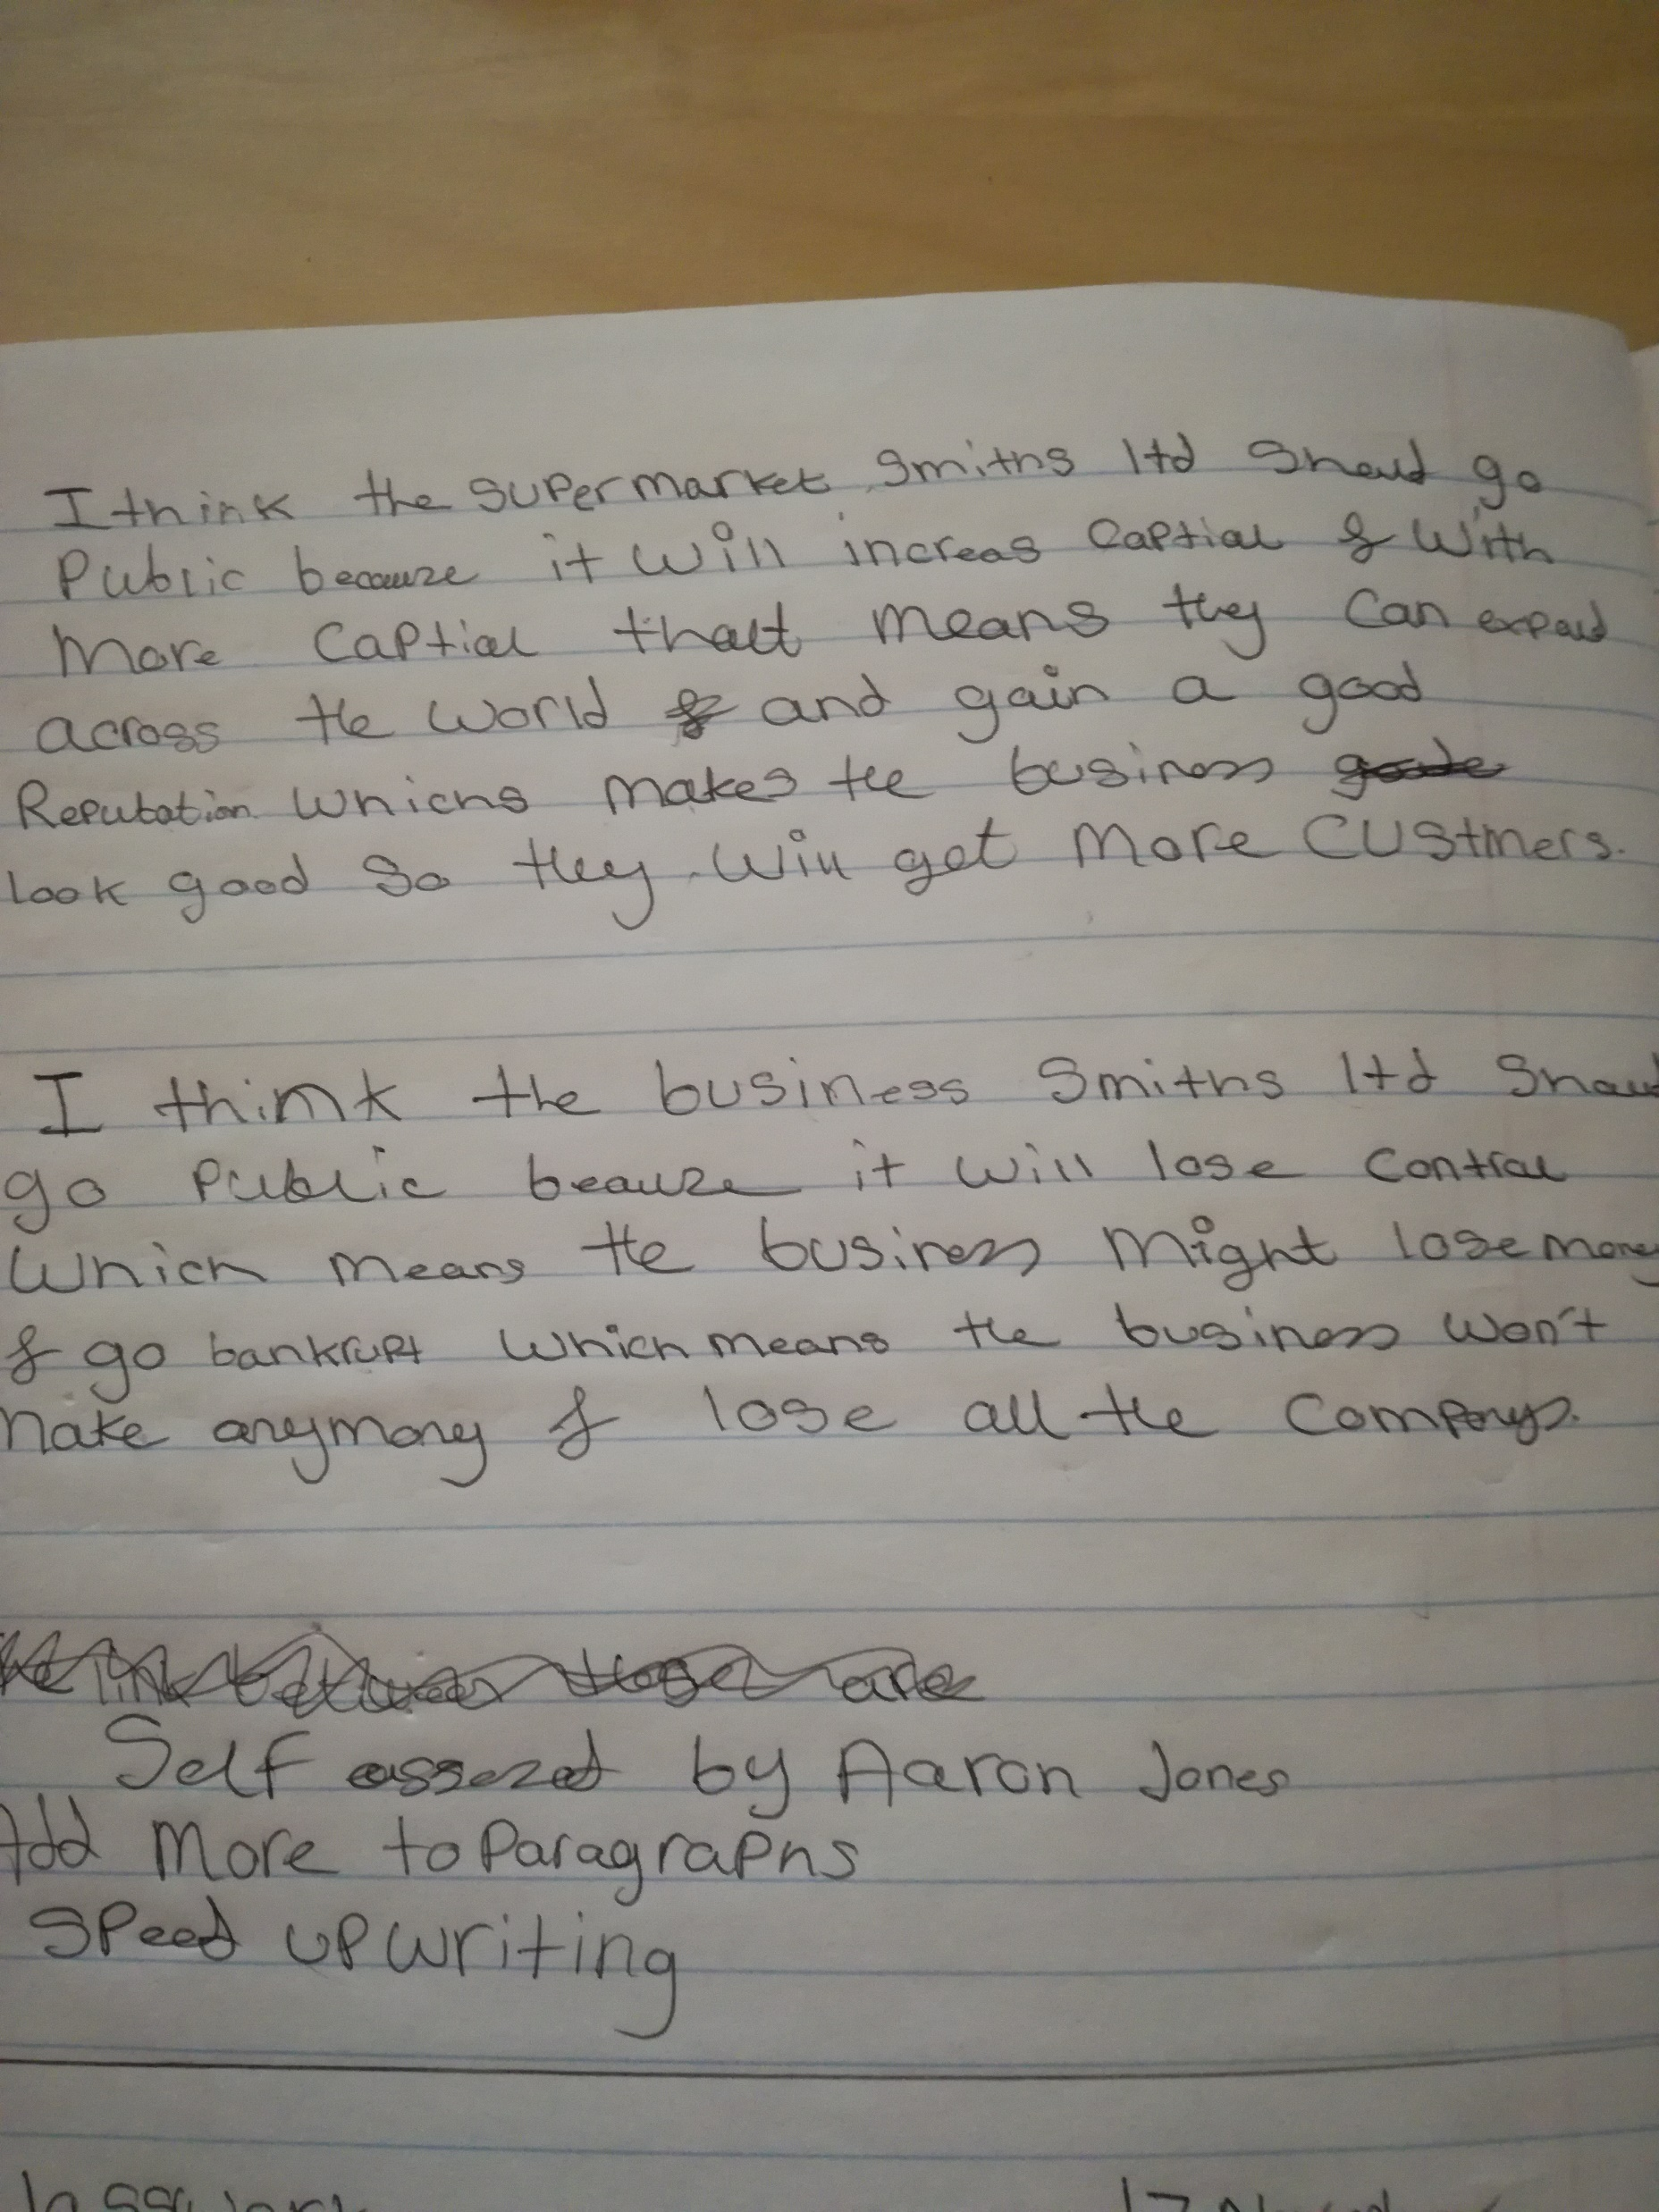 I think the supermarket Smiths ltd shoud go
Public because it will increas Captial & With
More Captial thatt means they Can expand
across the world and gain a good
Reputation whichs makes the business
look good so they will get More Custmers.
I think the business Smiths ltd shoud
go Public beauze it will lose control
Which means the business Might lose money
& go bankrupt which means the business won't
Make anymony & lose all the Companys.
Self assezed by Aaron Jones
Add More to Paragraphs
Speed up writing